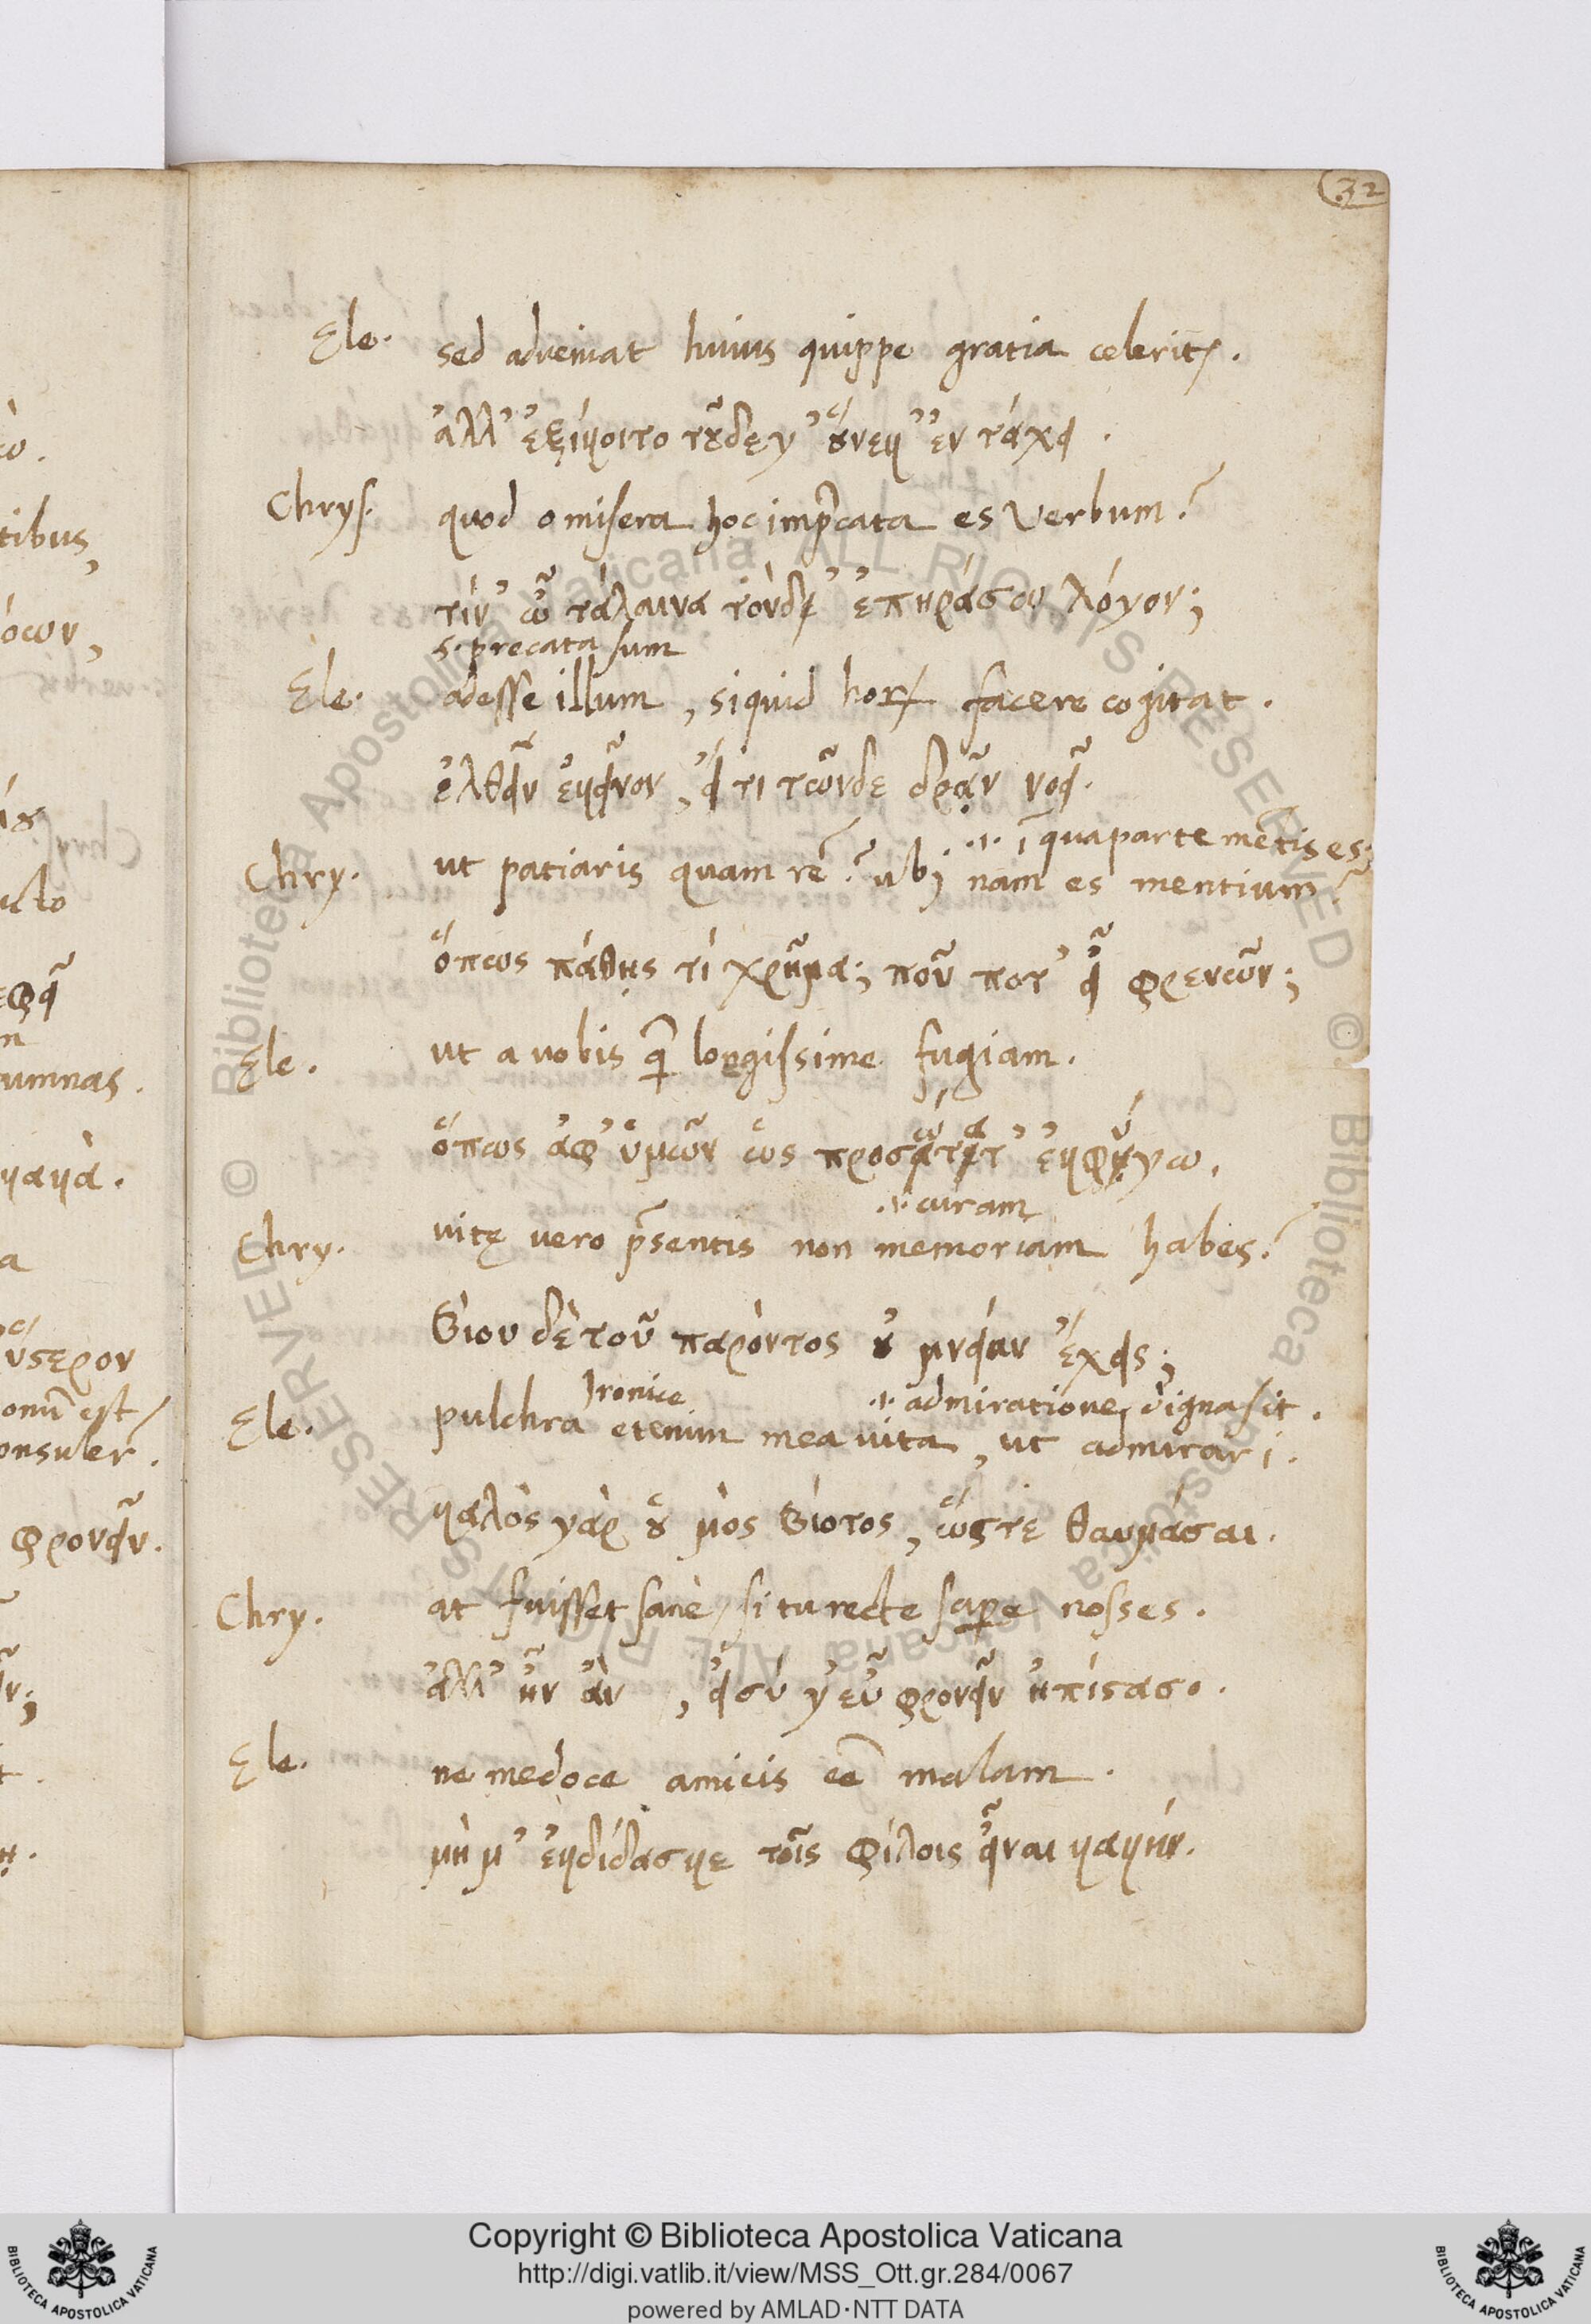 32
Ele. sed adveniat huius quippe gratia celerit̃.
ἀλλ' ἐξίκοιτο τοῦδέ γ' οὕνεκ' ἐν τάχει.
Chrys. quod o misera hoc imp̃cata es verbum?
τίν' ὦ τάλαινα τόνδ' ἐπηράσω λόγον;
s. precata sum
Ele. adesse illum, siquid hor̃ facere cogitat.
ἐλθεῖν ἐκεῖνον, εἴ τι τῶνδε δρᾷν νοεῖ.
.i. ĩ qua parte mẽtis es;
Chry. ut patiaris quam rẽ? ubi nam es mentium?
ὅπως πάθῃς τί χρῆμα; ποῦ ποτ' εἶ φρενῶν;
Ele. ut a vobis q̃ longissime fugiam.
ώ α ύ
ὅπως ἀφ' ὑμῶν ὡς προσείτετ' ἐκφύγω.
.i. curam
Chry. vitę vero p̃sentis non memoriam habes?
βίου δὲ τοῦ παρόντος οὐ μνείαν ἔχεις;
Ironice .i. admiratione digna sit.
Ele. pulchra etenim mea vita, ut admirari.
καλὸς γὰρ οὑ μὸς βίοτος, ὥστε θαυμάσαι.
Chry. at fuisset sanè, si tu recte sapere nosses.
ἀλλ' ἦν ἂν, εἰ σύ γ' εὖ φρονεῖν ἠπίστασο.
Ele. ne me doce amicis eẽ malam.
μή μ' ἐκδίδασκε τοῖς φίλοις εἶναι κακήν.
Copyright © Biblioteca Apostolica Vaticana
http://digi.vatlib.it/view/MSS_Ott.gr.284/0067
powered by AMLAD·NTT DATA